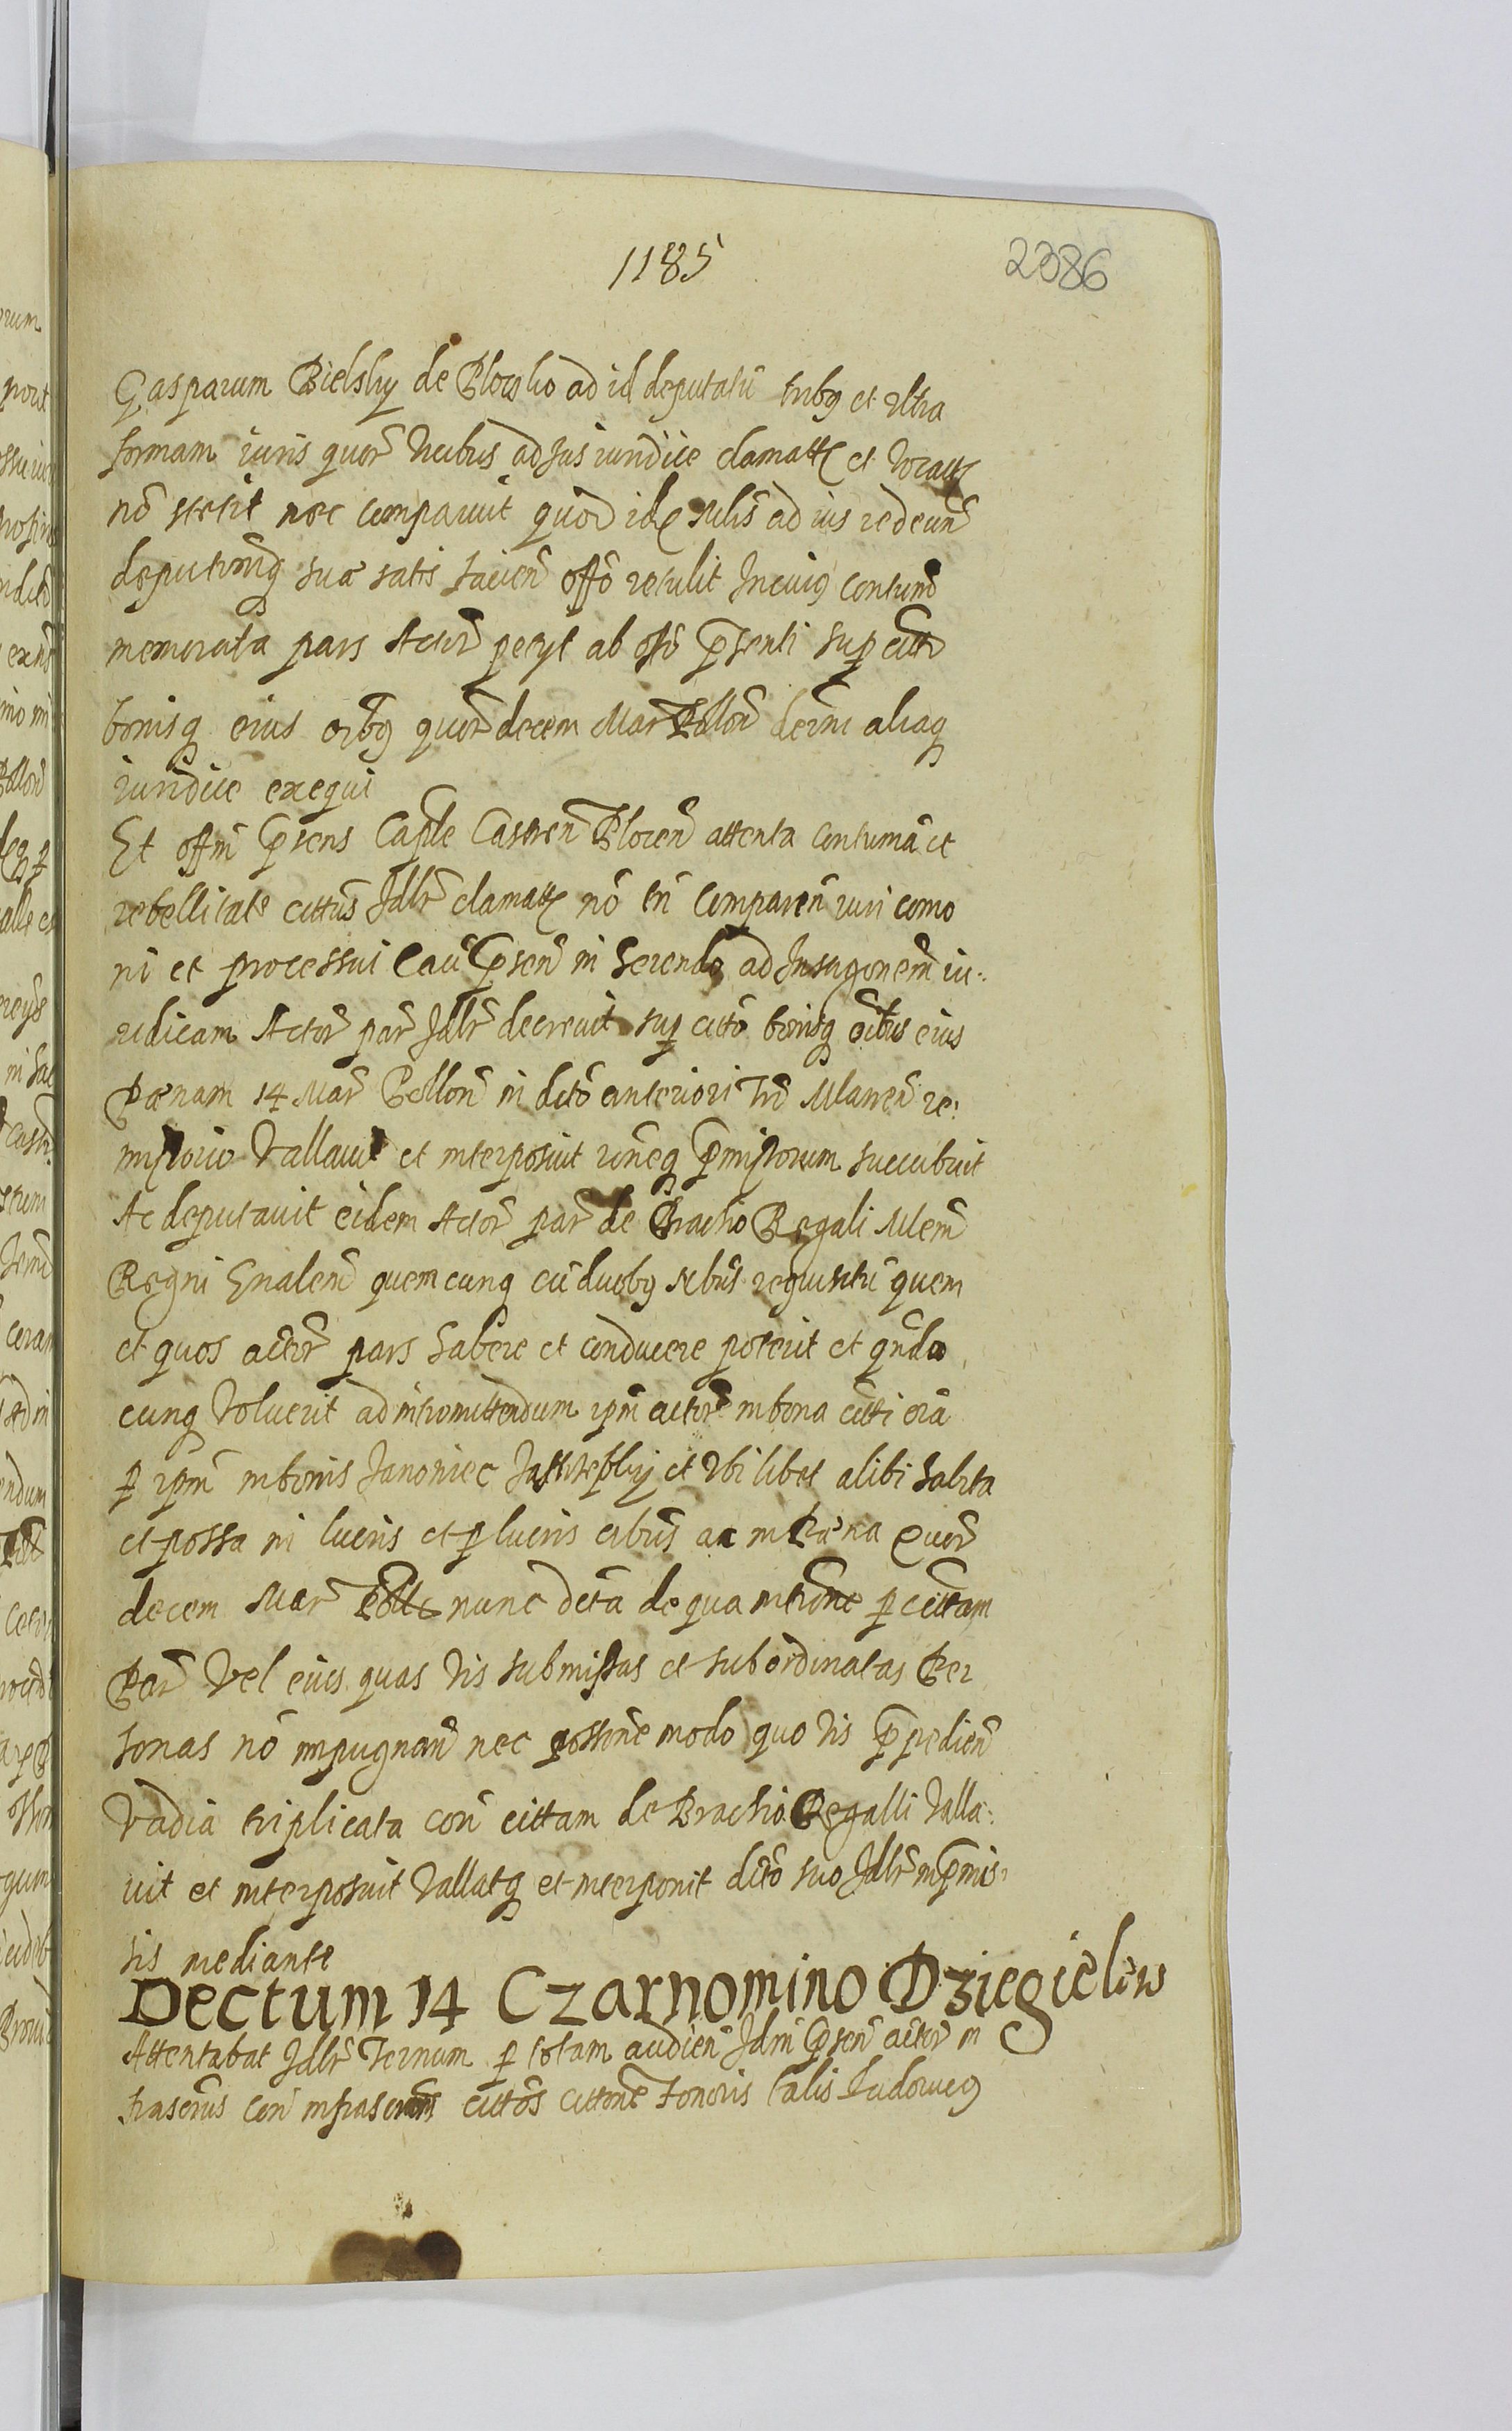 1185
2386
Gasparum Bielsky de Plowsko ad id deputatū tribꝫ et vltra
formam iuris quor̄ vicibus ad Jus iuridice clamatt et vocatt
nō stetit nec comparuit quod ide sctis ad ius redeun̄
deputionīq suæ satis facien̄ offō retulit In cuiꝫ contum̄
memorata pars Actor̄ petyt ab offō pr̄senti sup citt
bonisq eius oībꝫ quor̄ decem Mar̄ Pollon̄ decerni aliaq
iuridice exequi
Et offm̄ pr̄sens Caple Castren̄ Plocen̄ attenta contuma et
rebellitate cittus Jdlr̄ clamatt nō tn̄ comparen̄ iuri como
ni et processui cau pr̄sen̄ in herendo ad Insta͞onem iu:
ridicam Actor̄ par̄ Jdlr̄ decreuit sup citto bonisq oībus eius
Pœnam 14 Mar̄ Pollon̄ in dcto anteriori Tr̄ Mlawen̄ re:
missorio Vallauit et interposuit roneq pr̄missorum succubuit
Ac deputauit eidem Actor̄ par̄ de Brachio Regali Mlem̄
Regni Gnalem̄ quemcunq cū duobꝫ nbus requisitū quem
et quos actor̄ pars habere et conducere poterit et qndo
cunq voluerit ad intromittendum ipm̄ actor̄ in bona citti oīa
p ipm̄ in bonis Janowiec Jastrzebky et Vbi libet alibi habita
et possa in lucris et p lucris oībus ac in Pœna quor̄
decem Mar̄ Poll nunc dcta de qua introne p cittam
Par̄ Vel eius quas vis submissas et subordinatas Per
sonas nō impugnan̄ nec possione modo quo vis pr̄pedien̄
Vadia triplicata con̄ cittam de Brachio Regalli Valla:
uit et interposuit Vallatq et interponit dcto suo Jdlr̄ in pr̄mis:
sis mediante
Dectum 14 Czarnomino Dziegielew
Attentabat Jdlr̄ Ternum p totam audien̄ Jdm̄ pr̄sen̄ actor̄ in
frascrus con̄ infrascrum cittos cittone Tenoris talis Ludouicꝫ